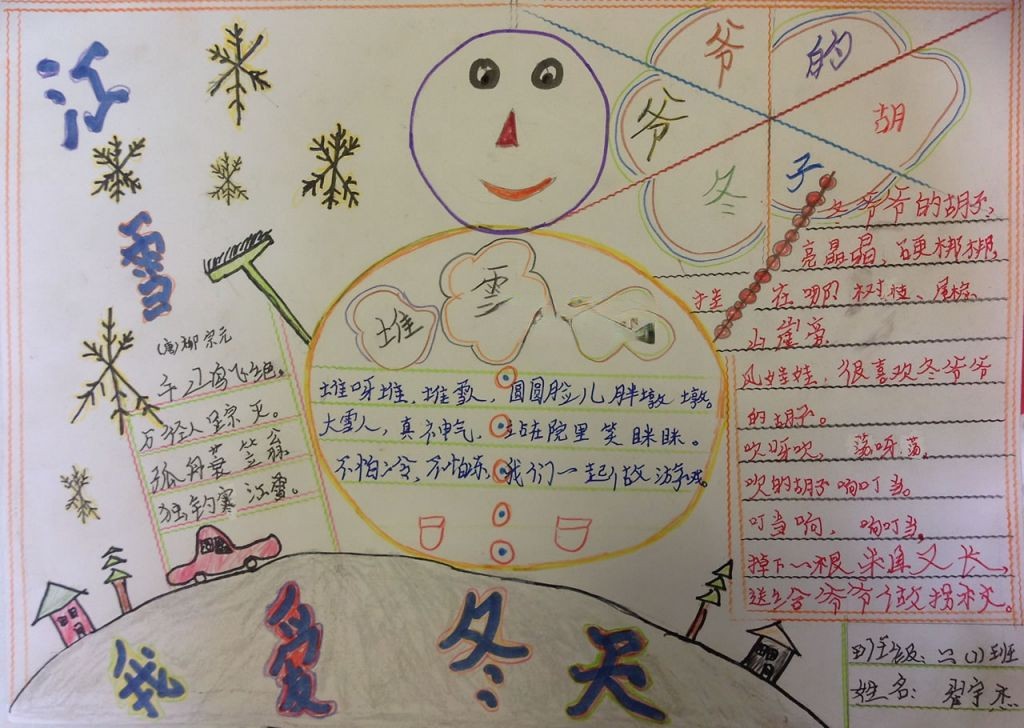 江
雪
(唐)柳宗元
千山鸟飞绝。
万径人踪灭。
孤舟蓑笠翁
独钓寒江雪。
堆
雪
堆呀堆,堆雪人,圆圆脸儿胖墩墩。
大雪人,真神气,站在院里笑眯眯。
不怕冷,不怕冻,我们一起做游戏。
冬爷爷的胡子
冬爷爷的胡子,
亮晶晶,硬梆梆
挂在哪?树枝、尾檐
山崖旁
风娃娃,很喜欢冬爷爷
的胡子。
吹呀吹,荡呀荡。
吹的胡子响叮当。
叮当响,响叮当,
掉下一根来直又长,
送给爷爷做拐杖。
我爱冬天
班级:三(1)班
姓名:翟宇杰